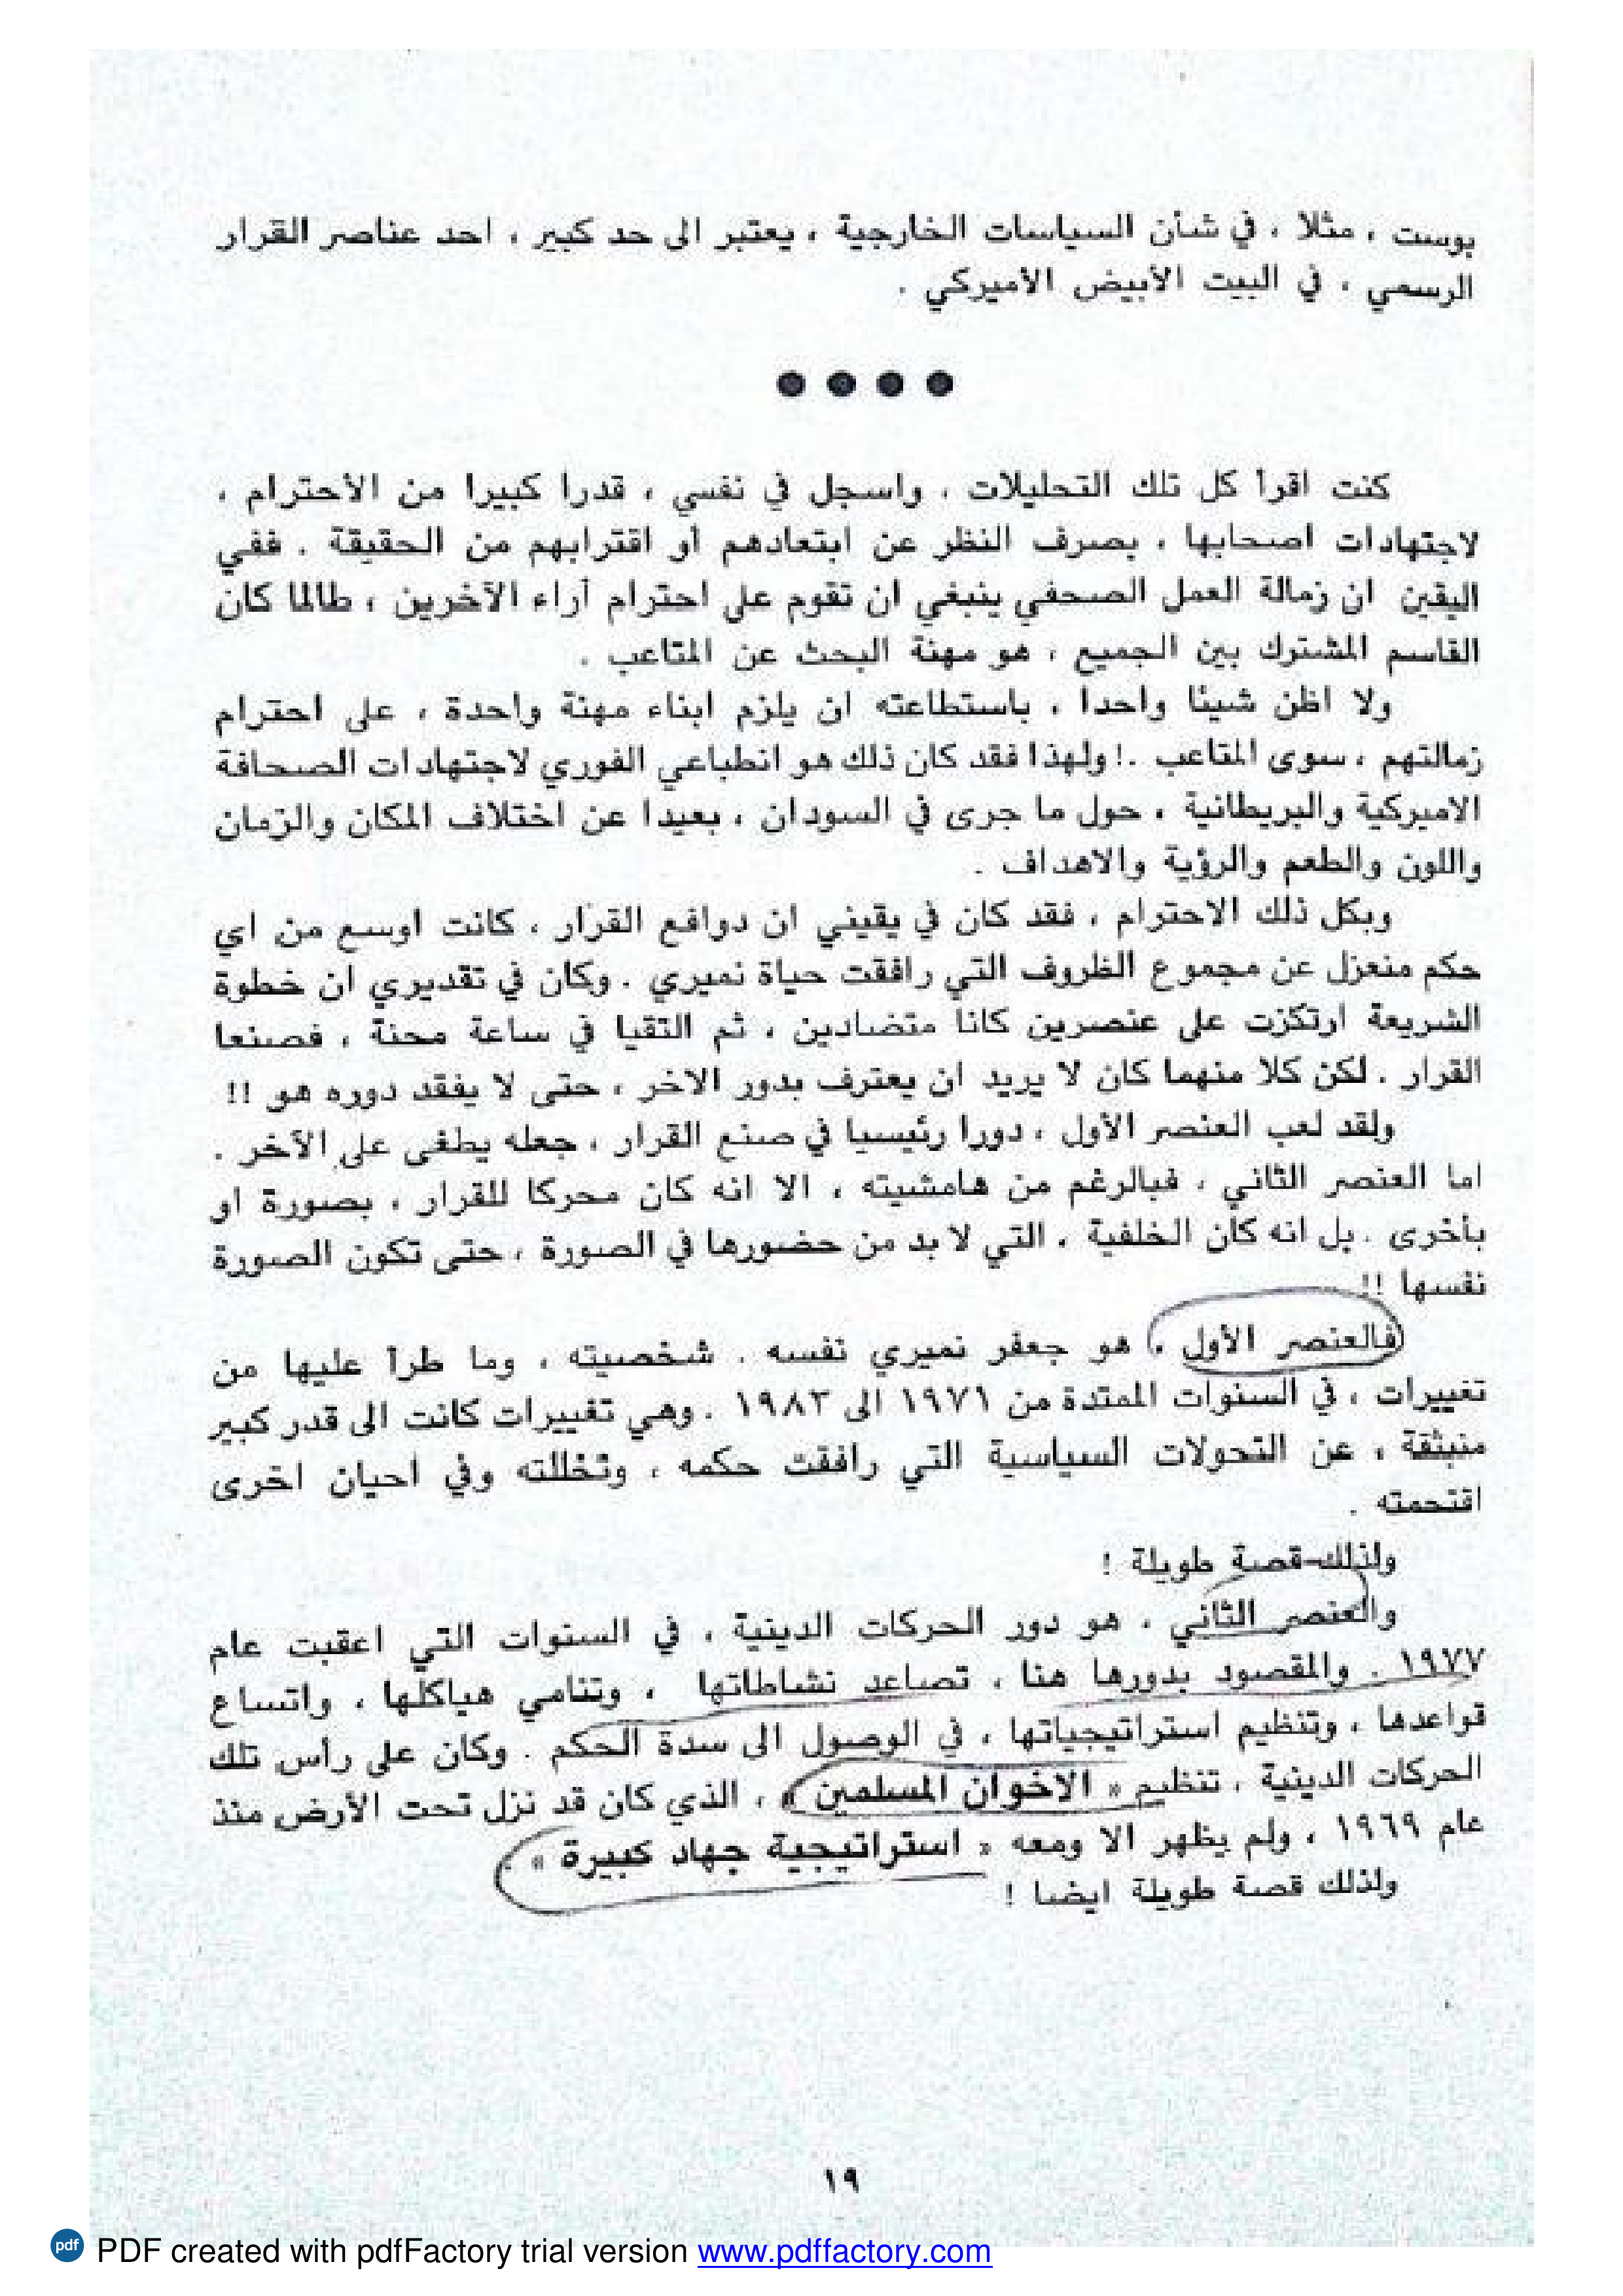 بوست ، مثلا ، في شأن السياسات الخارجية ، يعتبر الى حد كبير ، احد عناصر القرار
الرسمي ، في البيت الأبيض الاميركي .
● ● ● ●
كنت اقرأ كل تلك التحليلات ، واسجل في نفسي ، قدرا كبيرا من الأحترام ،
لاجتهادات اصحابها ، بصرف النظر عن ابتعادهم أو اقترابهم من الحقيقة . ففي
اليقين ان زمالة العمل الصحفي ينبغي ان تقوم على احترام أراء الآخرين ، طالما كان
القاسم المشترك بين الجميع ، هو مهنة البحث عن المتاعب .
ولا اظن شيئا واحدا ، باستطاعته ان يلزم ابناء مهنة واحدة ، على احترام
زمالتهم ، سوى المتاعب .! ولهذا فقد كان ذلك هو انطباعي الفوري لاجتهادات الصحافة
الاميركية والبريطانية ، حول ما جرى في السودان ، بعيدا عن اختلاف المكان والزمان
واللون والطعم والرؤية والاهداف .
وبكل ذلك الاحترام ، فقد كان في يقيني ان دوافع القرار ، كانت اوسع من اي
حكم منعزل عن مجموع الظروف التي رافقت حياة نميري . وكان في تقديري ان خطوة
الشريعة ارتكزت على عنصرين كانا متضادين ، ثم التقيا في ساعة محنة ، فصنعا
القرار . لكن كلا منهما كان لا يريد ان يعترف بدور الاخر ، حتى لا يفقد دوره هو !!
ولقد لعب العنصر الأول ، دورا رئيسيا في صنع القرار ، جعله يطغى على الآخر .
اما العنصر الثاني ، فبالرغم من هامشيته ، الا انه كان محركا للقرار ، بصورة او
بأخرى . بل انه كان الخلفية ، التي لا بد من حضورها في الصورة ، حتى تكون الصورة
نفسها !!
فالعنصر الأول ، هو جعفر نميري نفسه . شخصيته ، وما طرأ عليها من
تغييرات ، في السنوات الممتدة من ١٩٧١ الى ١٩٨٣ . وهي تغييرات كانت الى قدر كبير
منبثقة ، عن التحولات السياسية التي رافقت حكمه ، وتخللته وفي احيان اخرى
اقتحمته .
ولذلك قصة طويلة !
والعنصر الثاني ، هو دور الحركات الدينية ، في السنوات التي اعقبت عام
١٩٧٧ . والمقصود بدورها هنا ، تصاعد نشاطاتها ، وتنامي هياكلها ، واتساع
قواعدها ، وتنظيم استراتيجياتها ، في الوصول الى سدة الحكم . وكان على رأس تلك
الحركات الدينية ، تنظيم « الاخوان المسلمين » ، الذي كان قد نزل تحت الأرض منذ
عام ١٩٦٩ ، ولم يظهر الا ومعه « استراتيجية جهاد كبيرة » .
ولذلك قصة طويلة ايضا !
١٩
pdf PDF created with pdfFactory trial version www.pdffactory.com